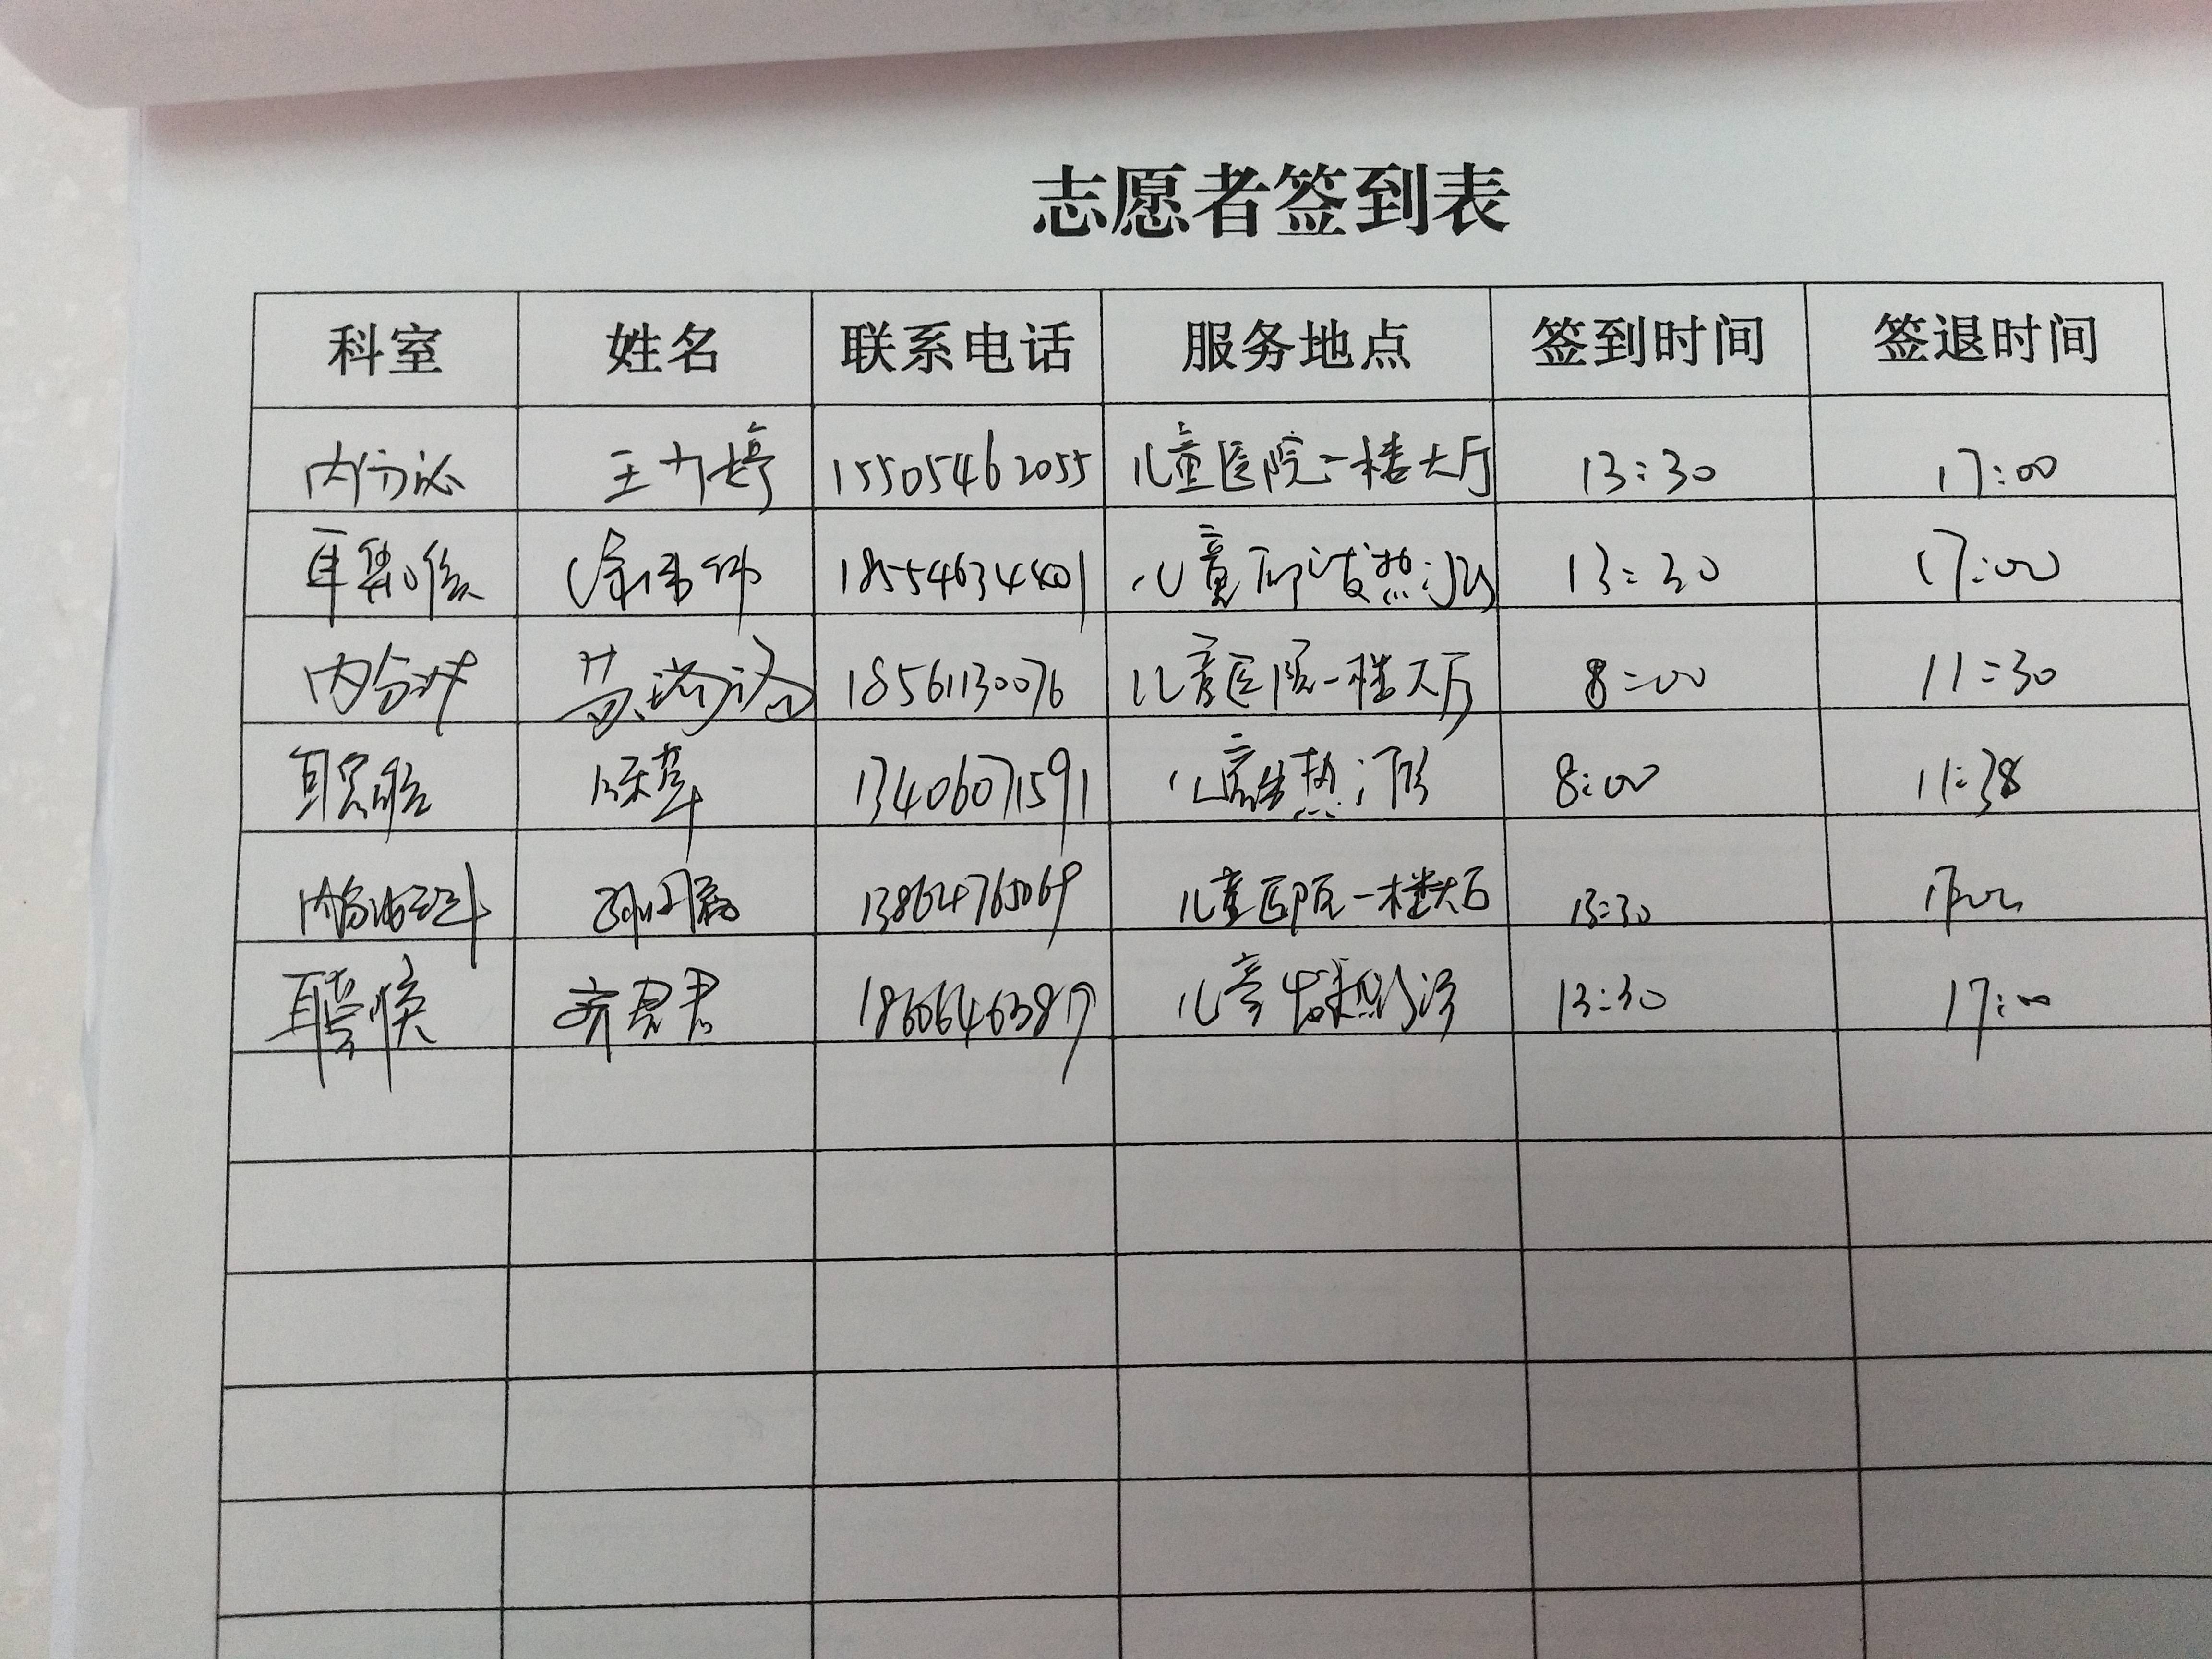 志愿者签到表
科室 姓名 联系电话 服务地点 签到时间 签退时间
内分泌 王婷 15505462055 儿童医院一楼大厅 13:30 17:00
耳鼻喉 18554634401 儿童发热 13:30 17:00
内分泌 18561130076 儿童医院一楼大厅 8:00 11:30
耳鼻喉 13406071591 儿童发热门诊 8:00 11:38
内分泌 13864765069 儿童医院一楼大厅 13:30 17:00
耳鼻喉 齐君君 儿童发热门诊 13:30 17:00